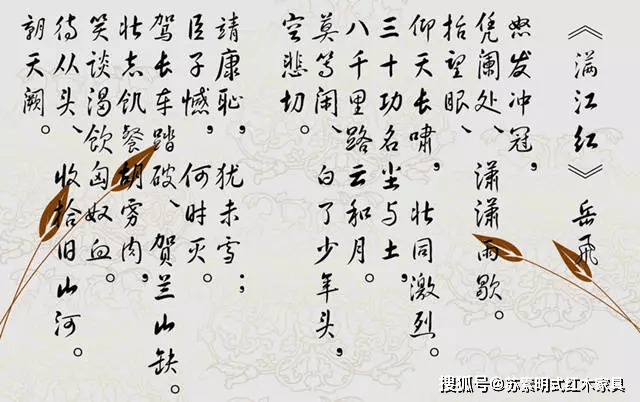 《满江红》岳飛
怒发冲冠,
凭阑处、潇潇雨歇。
抬望眼、
仰天长啸,壮同激烈。
三十功名尘与土,
八千里路云和月。
莫等闲、白了少年头,
空悲切。
靖康耻,犹未雪;
臣子憾,何时灭。
驾长车踏破、贺兰山缺。
壮志饥餐胡虏肉,
笑谈渴饮匈奴血。
待从头、收拾旧山河。
朝天阙。
搜狐号@苏蒙明式红木家具